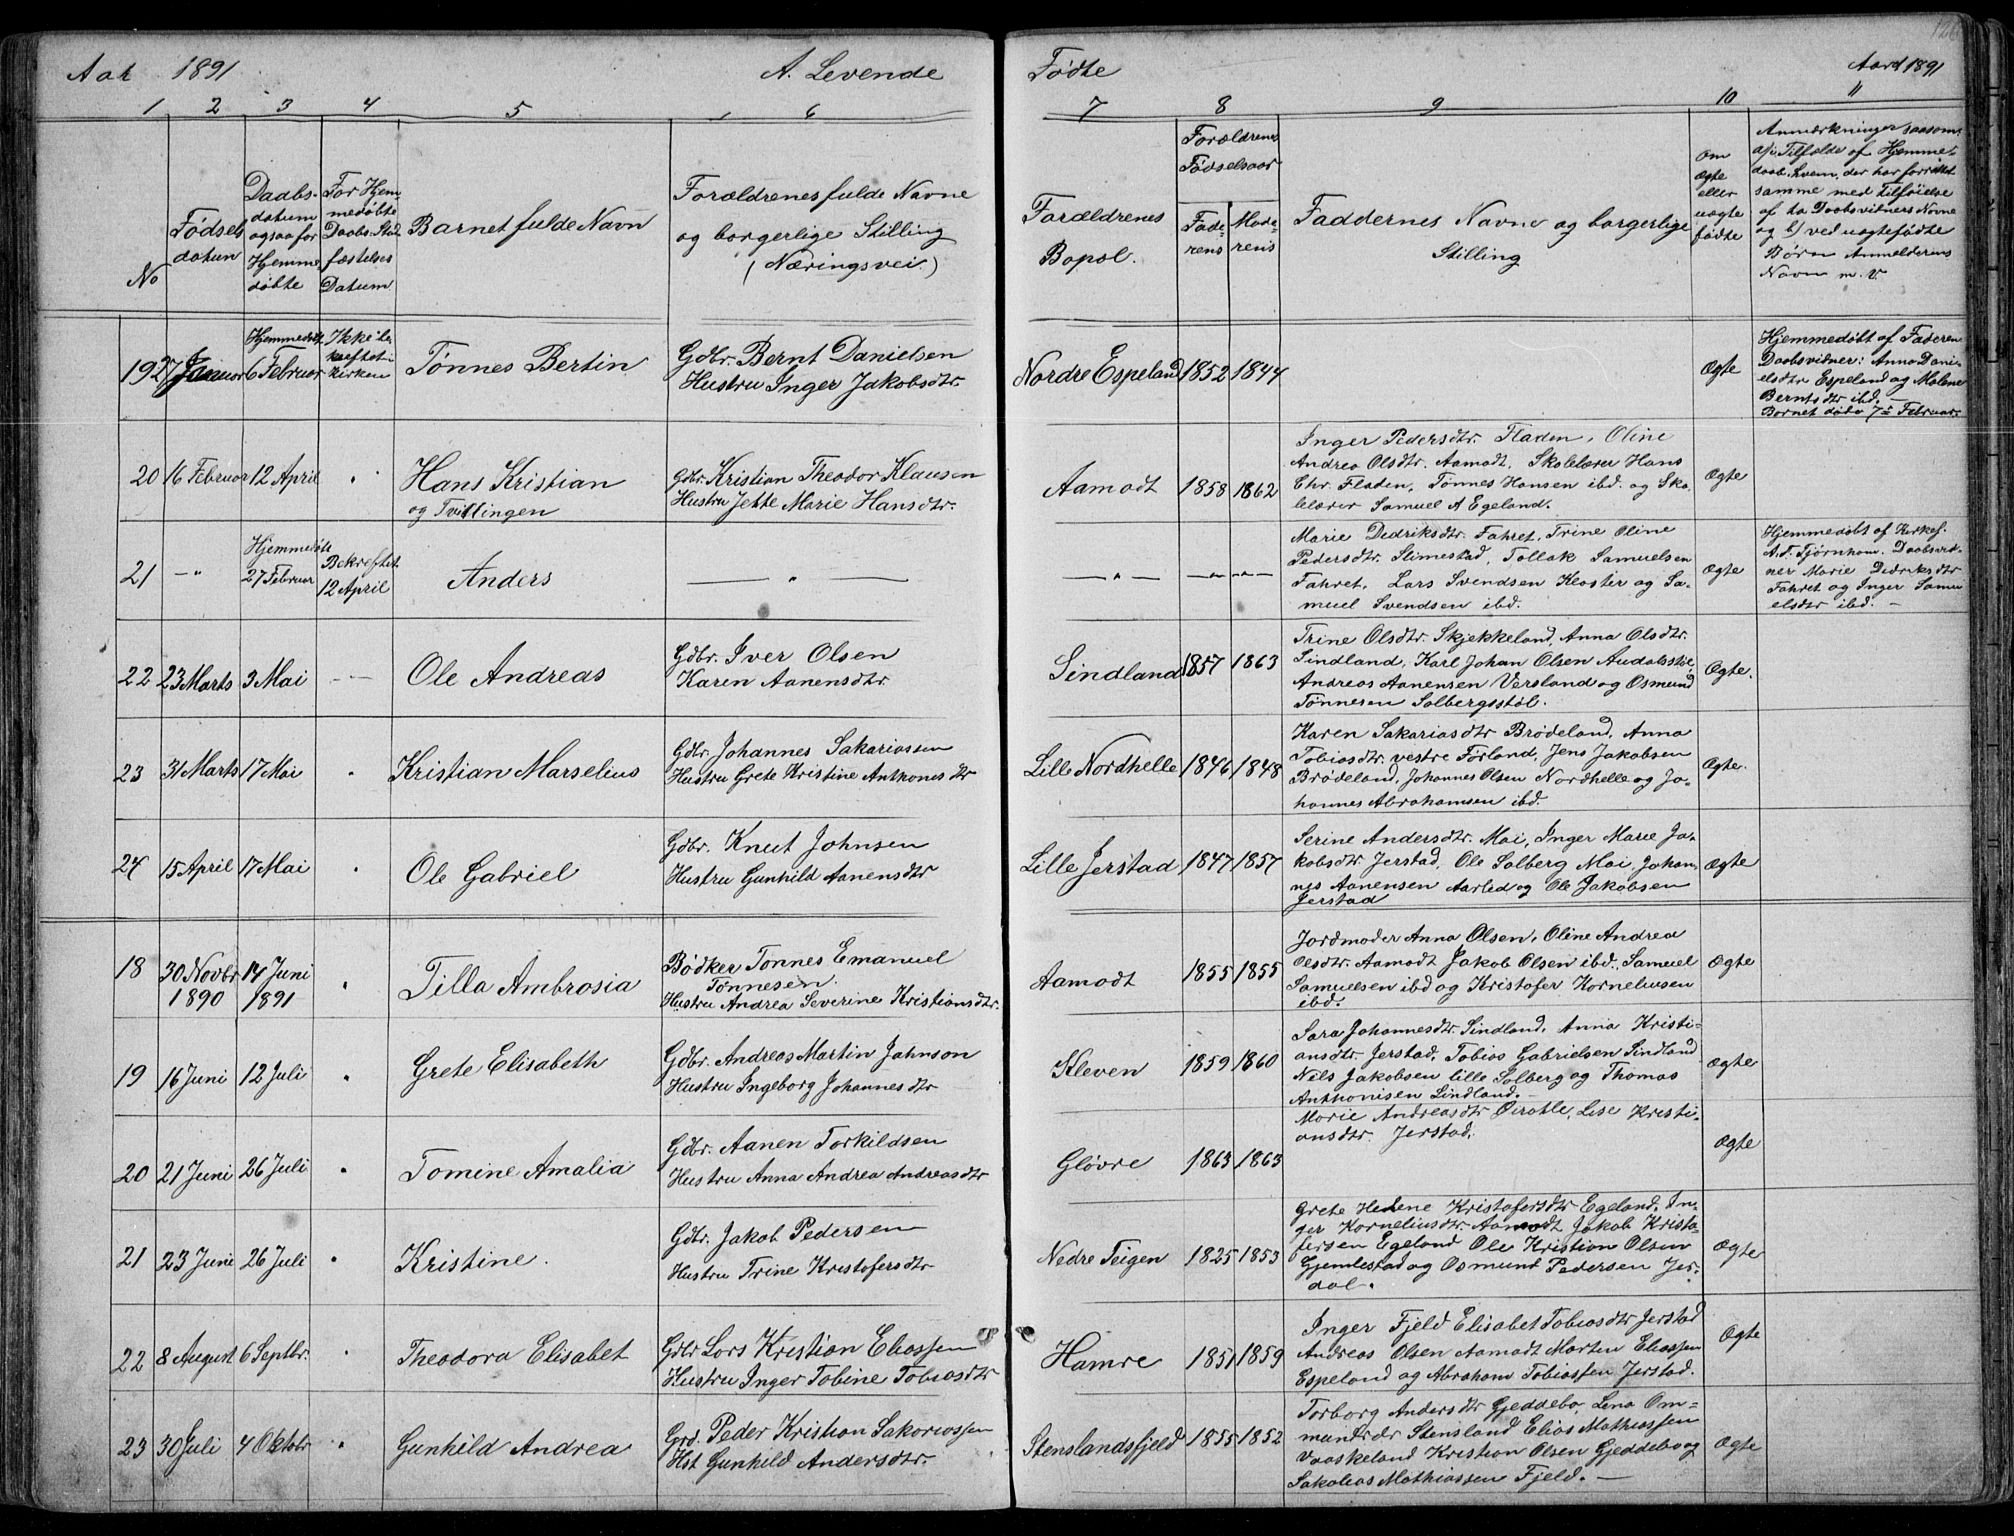 Aar 1891 A. Levende Fødte Aar 1891
1 2 3 4 5 6 7 8 9 10 11
No
Fødsels
datum
Daabs-
datum
ogsaa for
Hjemme
døbte
For Hjem-
medøbte
Daabs-Stad
fæstelses
Datum
Barnet fulde Navn
Forældrenes fulde Navne
og borgerlige Stilling
(Næringsvei.)
Forældrenes
Bopæl.
Forældrenes
Fødselsaar
Fade-
rens
Mode-
rens
Faddernes Navne og borgerlige
Stilling
om
Ægte
eller
uægte
fødte
Anmærkninger saasom
a/i Tilfælde af Hjemme-
daab, hvem, der har forrettet
samme med Tilføielse
af to Daabsvidners Navne
og b/ ved uægtefødte
Børn Anmelderens
Navn m. v.
19 27 Januar
Hjemmedøbt
6 Februar
Ikke be-
kræftet i
kirken
Tønnes Bertin
Gdbr. Bernt Danielsen
Hustru Inger Jakobsdtr.
Nordre Espeland 1852 1844
Ægte
Hjemmedøbt af Faderen
Daabsvidner: Anna Dani-
elsdtr Espeland og Malene
Berntsdtr ibd. —
Barnet døde 7de Februar.
20 16 Februar 12 April "
Hans Kristian
og Tvillingen
Gdbr. Kristian Theodor Klausen
Hustru Jette Marie Hansdtr.
Aamodt 1858 1862
Inger Pedersdtr. Fladen, Oline
Andrea Olsdtr. Aamodt, Skolelærer Hans
Chr. Fladen, Tønnes Hansen ibd. og Sko-
lelærer Samuel A Egeland.
Ægte
21 — "
Hjemmedøbt
27 Februar
Bekræftet
12 April
Anders
— " —
— " — — " — — " —
Marie Dedriksdtr. Fahret, Trine Oline
Pedersdtr. Slimestad, Tollak Samuelsen
Fahret, Lars Svendsen Kloster og Sa-
muel Svendsen ibd.
Ægte
Hjemmedøbt af Kirkes.
A. T. Tjørnhom. Daabsvid-
ner Marie Dedriksdtr
Fahret og Inger Samu
elsdtr ibd. —
22 23 Marts 3 Mai — —
Ole Andreas
Gdbr. Iver Olsen
Karen Aanensdtr
Sindland 1857 1863
Trine Olsdtr. Skjekkeland, Anna Olsdtr.
Sindland, Karl Johan Olsen Audalsstøl
Andreas Aanensen Versland og Osmund
Tønnesen Solbergsstøl.
Ægte.
23 31 Marts 17 Mai "
Kristian Marselius
Gdbr. Johannes Sakariassen
Hustru Grete Kristine Anthonisdtr
Lille Nordhelle 1846 1848
Karen Sakariasdtr Brødeland, Anna
Tobiasdtr. vestre Førland, Jens Jakobsen
Brødeland, Johannes Olsen Nordhelle og Jo-
hannes Abrahamsen ibd.
Ægte.
24 15 April 17 Mai "
Ole Gabriel
Gdbr. Knut Johnsen
Hustru Gunhild Aanensdtr
Lille Jerstad 1847 1857
Serine Andersdtr. Moi, Inger Marie Ja-
kobsdtr. Jerstad, Ole Solberg Moi, Johan-
nes Aanensen Aarlid og Ole Jakobsen
Jerstad
Ægte
18 30 Novbr 14 Juni "
1890 1891
Tilla Ambrosia
Bødker Tønnes Emanuel
Tønnesen.
Hustru Andrea Severine Kristiansdtr.
Aamodt 1855 1855
Jordmoder Anna Olsen, Oline Andrea
Olsdtr. Aamodt Jakob Olsen ibd., Samuel
Samuelsen ibd og Kristofer Korneliusen
ibd.
Ægte
19 16 Juni 12 Juli "
Grete Elisabeth
Gdbr. Andreas Martin Johnson
Hustru Ingeborg Johannesdtr
Kleven 1859 1860
Sara Johannesdtr. Sindland, Anna Kristi-
ansdtr. Jerstad, Tobias Gabrielsen Sindland
Nils Jakobsen lille Solberg og Thomas
Anthonisen Sindland. —
Ægte
20 21 Juni 26 Juli "
Tomine Amalia
Gdbr. Aanen Torkildsen
Hustru Anna Andrea Andreasdtr
Gløvre 1863 1863
Marie Andreasdtr Øisotle, Lise Kristi-
ansdtr. Jerstad.
Ægte
21 23 Juni 26 Juli "
Kristine.
Gdbr. Jakob Pedersen
Hustru Trine Kristofersdtr
Nedre Teigen 1825 1853
Grete Helene Kristofersdtr Egeland, In-
ger Korneliusdtr. Aamodt, Jakob Kristo-
fersen Egeland Ole Kristian Olsen
Gjemlestad og Osmund Pedersen Jer-
dal.
Ægte
22 8 August 6 Septbr. "
Theodora Elisabet
Gdbr Lars Kristian Eliassen
Hustru Inger Tobine Tobiasdtr
Hamre 1851 1859
Inger Fjeld Elisabet Tobiasdtr Jerstad
Andreas Olsen Aamodt Morten Eliassen
Espeland og Abraham Tobiassen Jerstad.
Ægte
23 30 Juli 4 Oktobr "
Gunhild Andrea
Grd. Peder Kristian Sakariassen
Hst Gunhild Andersdtr.
Stenslandsfjeld 1855 1852
Torborg Andersdtr Gjeddebo, Lena Om-
mundsdr Stensland Elias Mathiassen
Vaaskeland Kristian Olsen Gjeddebo og
Sakarias Mathiassen Fjeld. —
Ægte